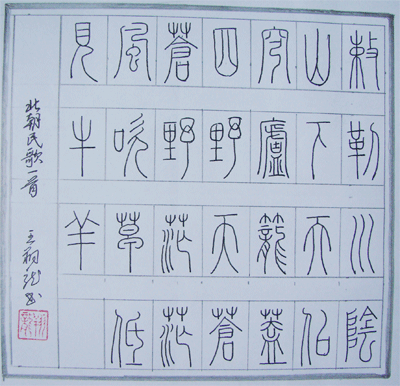 敕勒川陰
山下天似
穹廬籠蓋
四野天蒼
蒼野茫茫
風吹草低
見牛羊
北朝民歌一首 王翔龙书